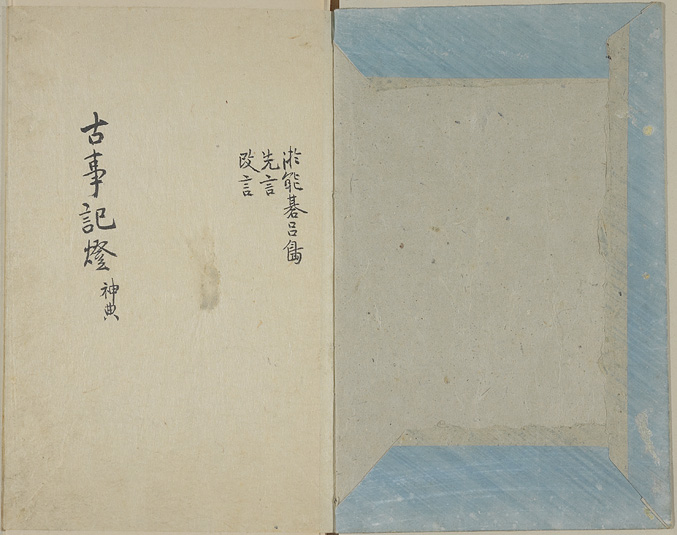 淤能碁呂嶋
先言
改言
古事記燈 神典